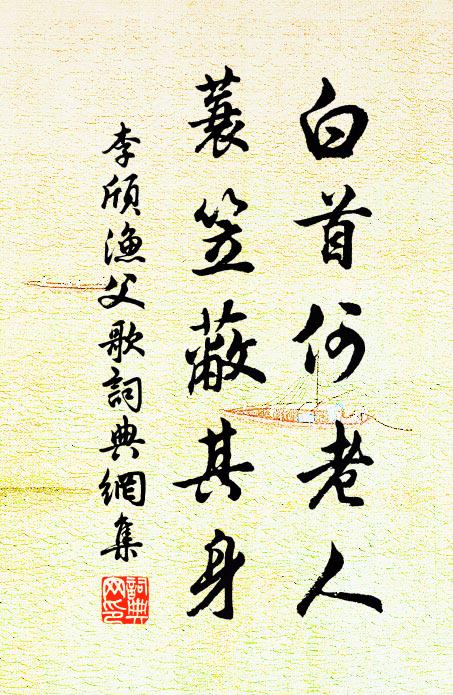 白首何老人
蓑笠蔽其身
李頎漁父歌詞典網集
詞典网印